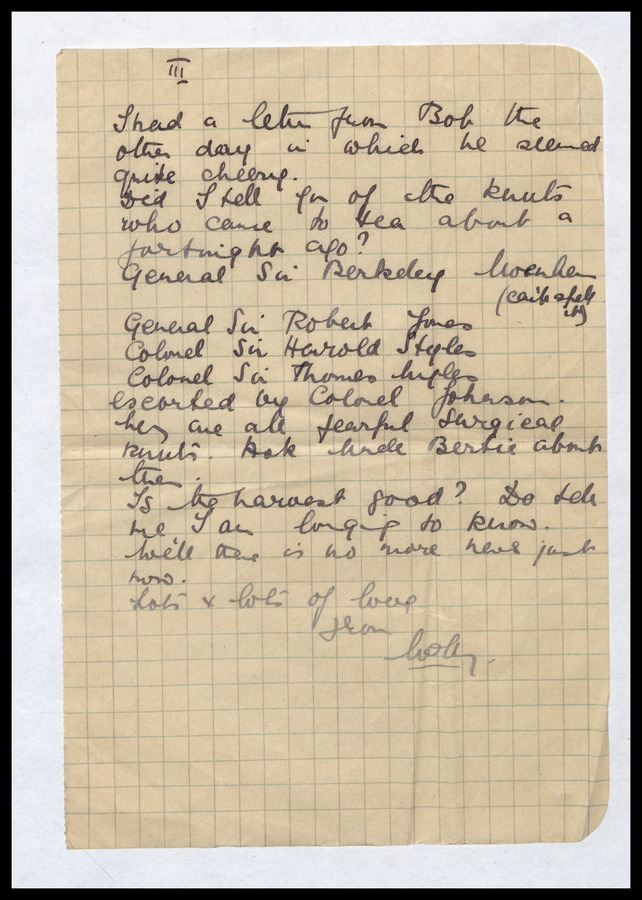 III
I had a letter from Bob the
other day in which he seemed
quite cheery.
Did I tell you of the knuts
who came to tea about a
fortnight ago?
General Sir Berkeley
(can't spell
it)
General Sir Robert Jones
Colonel Sir Harold Styles
Colonel Sir Thomas Myles
escorted by Colonel Johnson.
They are all fearful surgical
knuts. Ask Uncle Bertie about
them.
Is the harvest good? Do tell
me I am longing to know.
Well there is no more news just
now.
Lots & lots of love
from